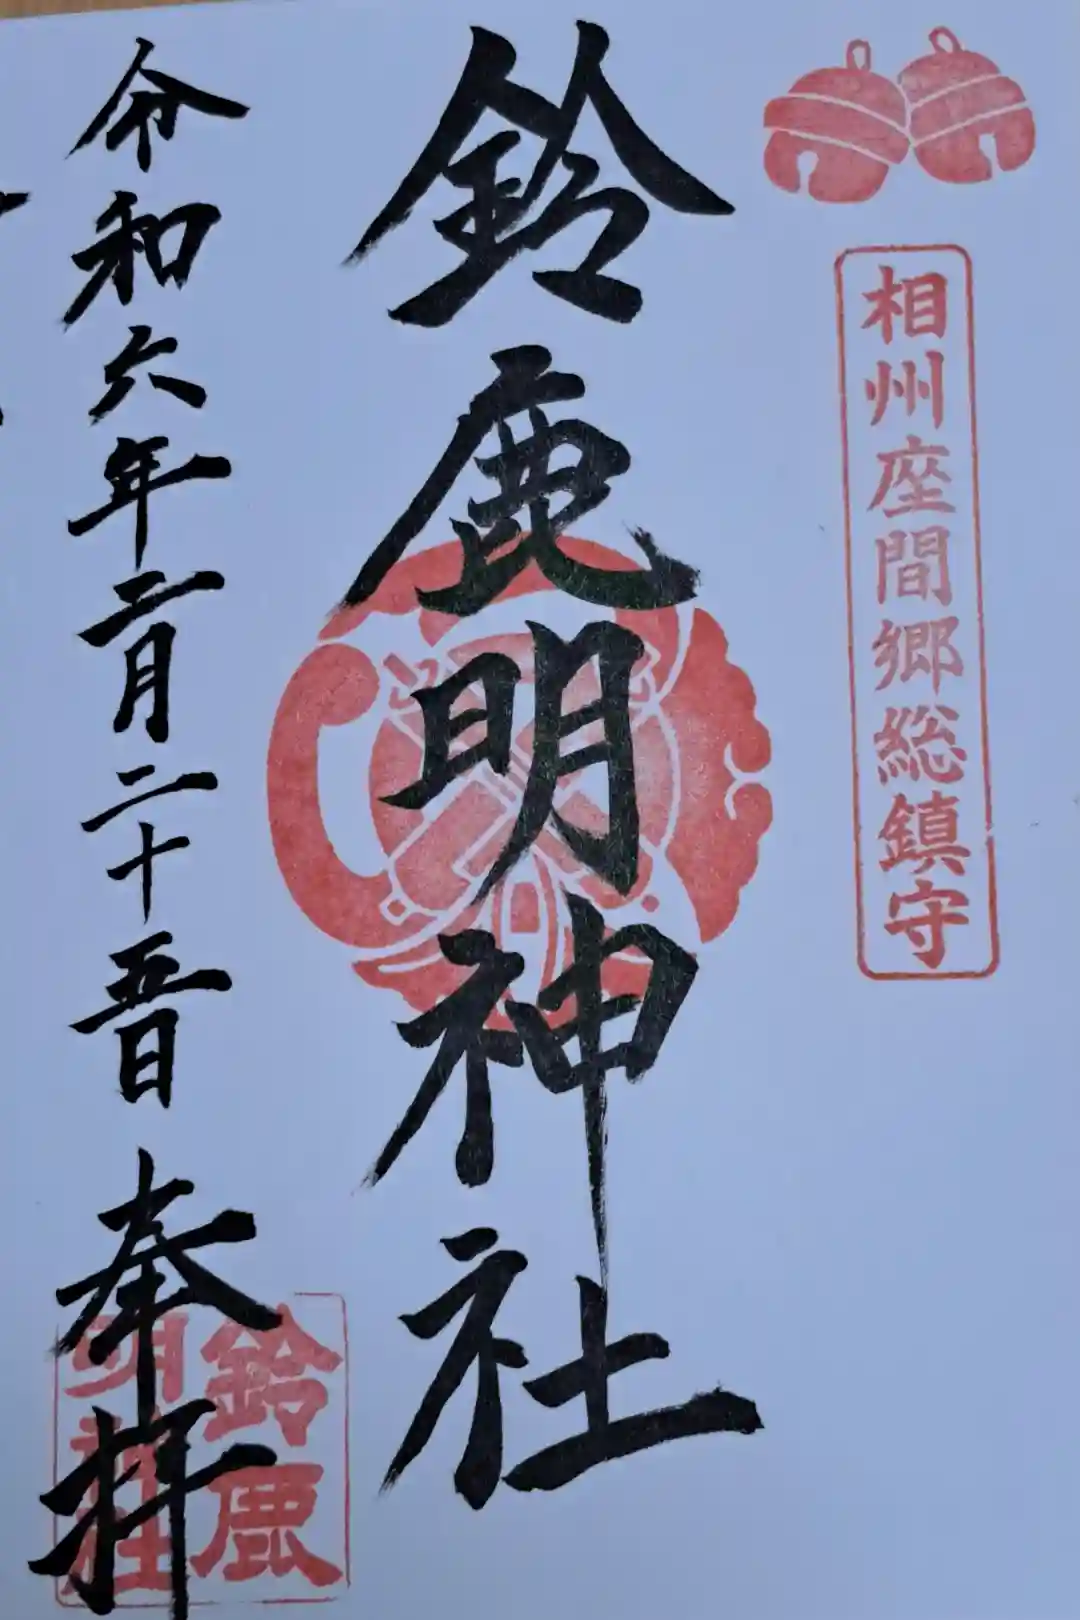 相州座間郷総鎮守
鈴鹿明神社
令和六年二月二十五日 奉拝
鈴鹿
明神社